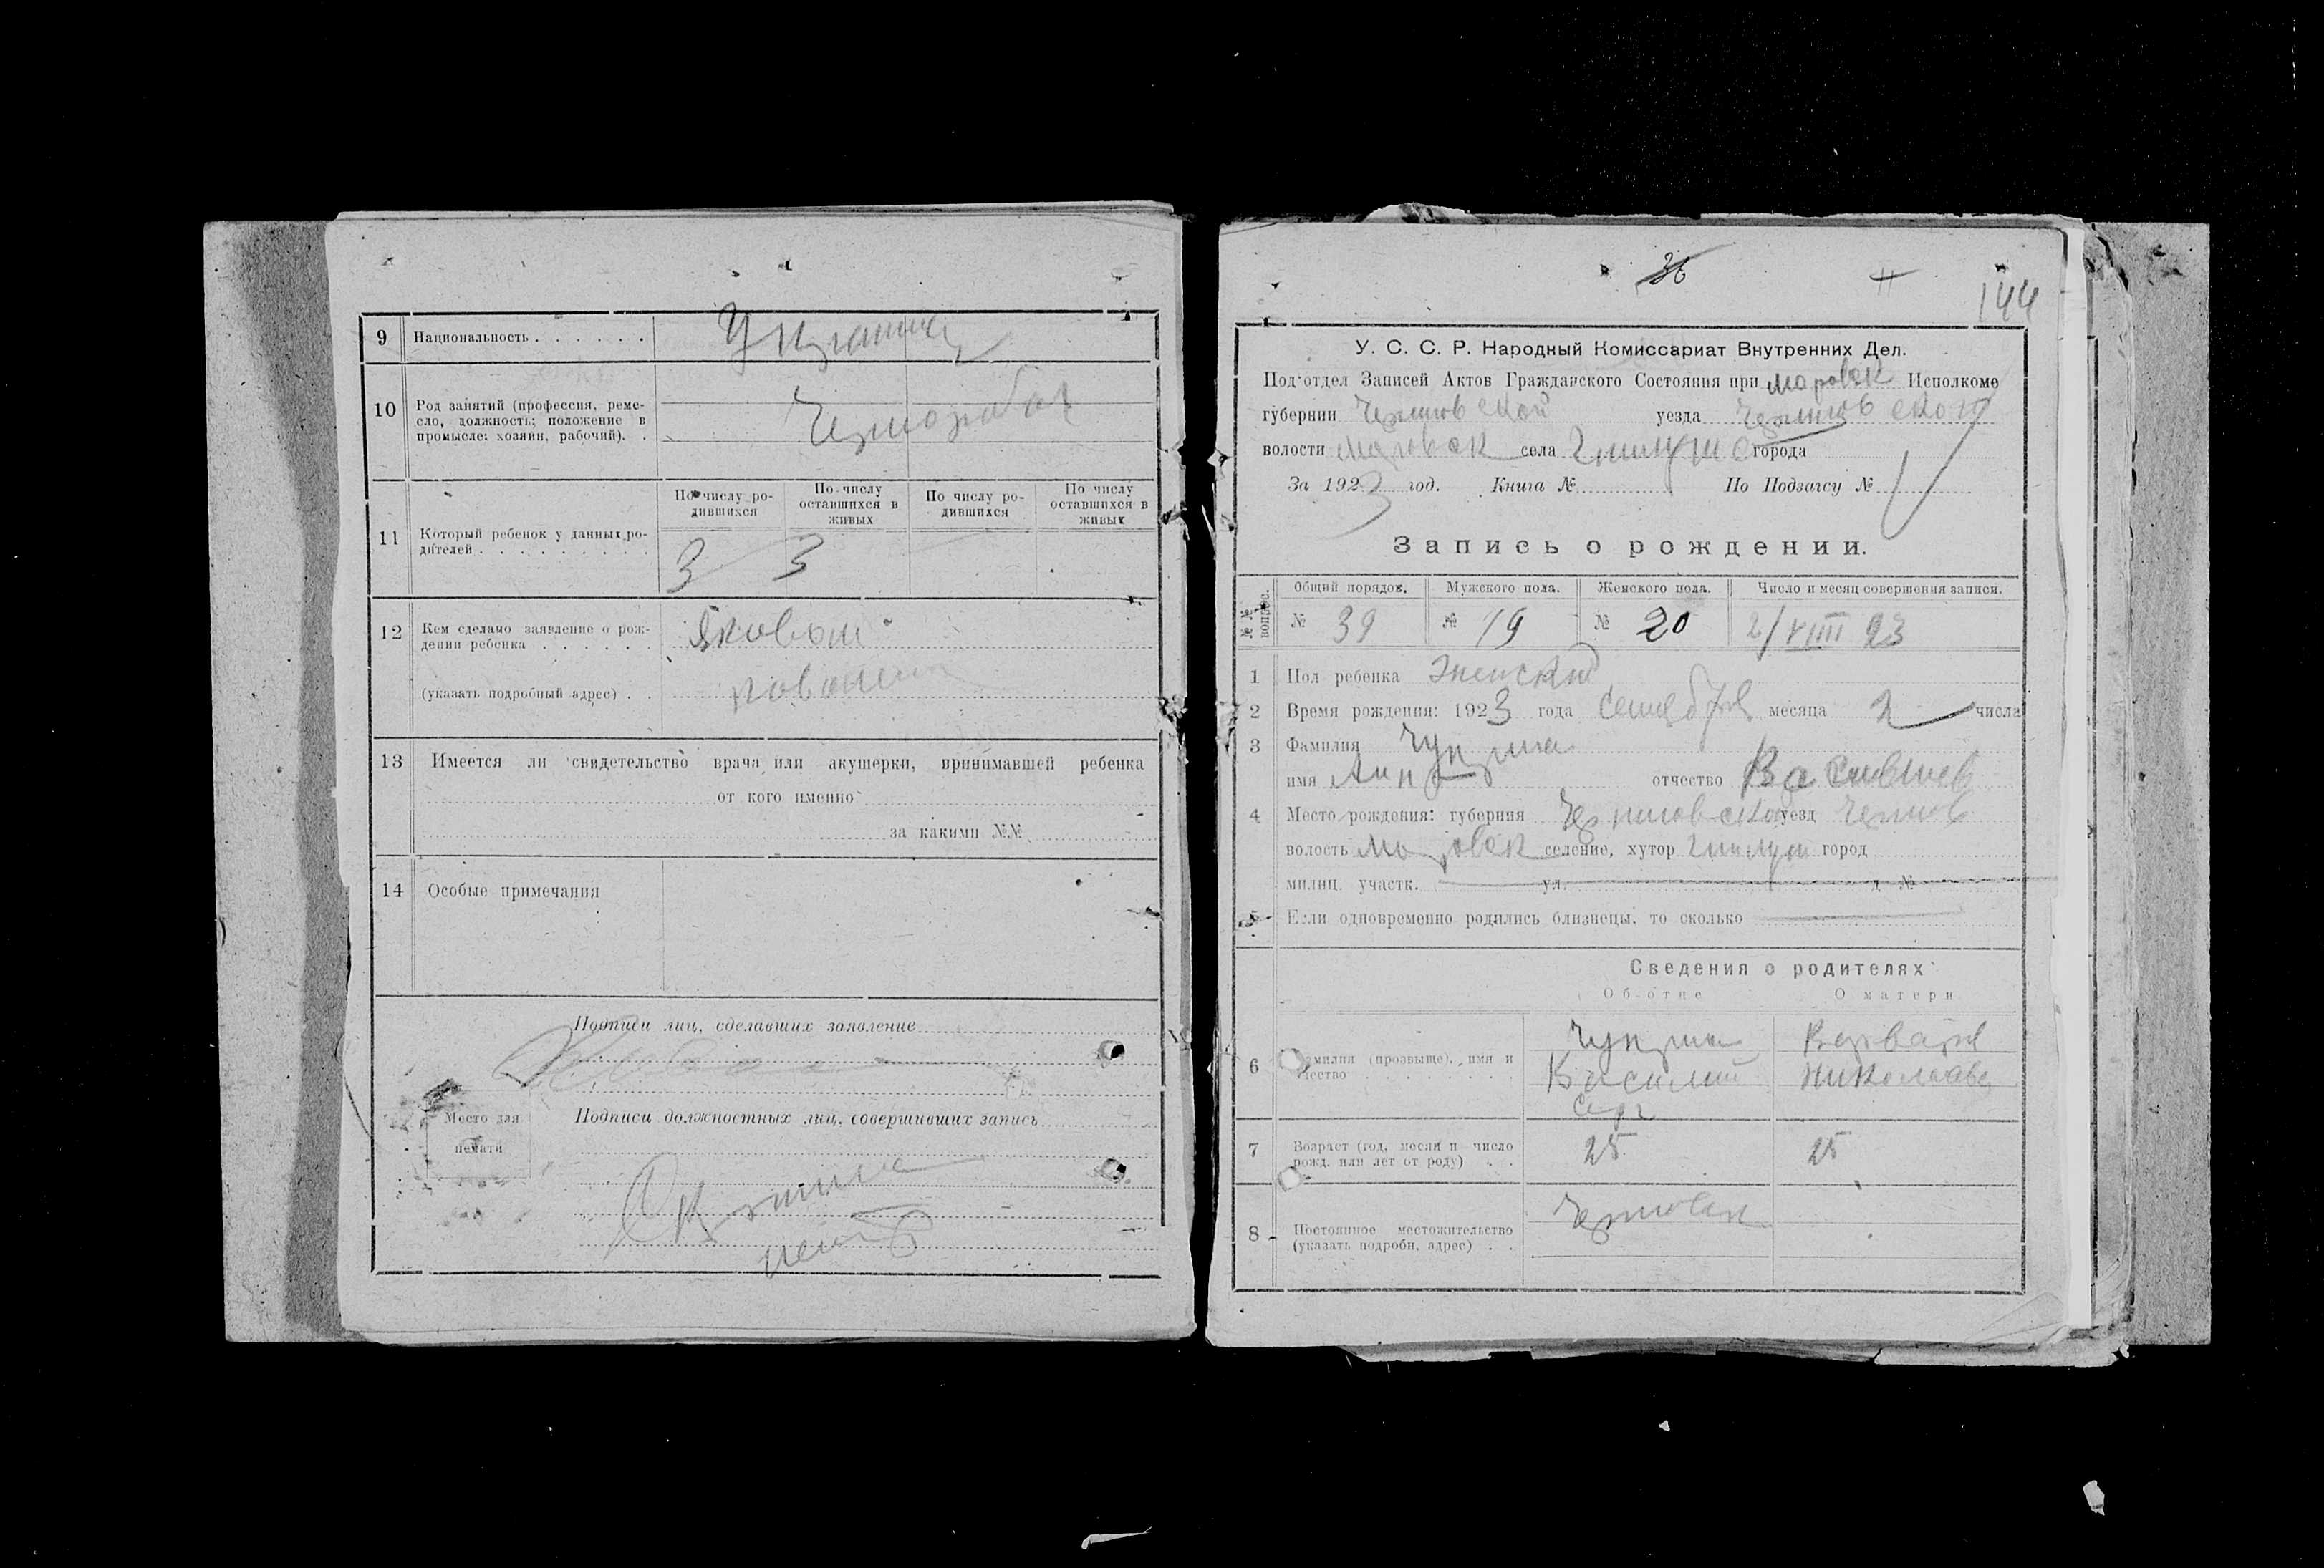 9 Национальность . . . . . .
10 Род занятий (профессия, реме-
сло, должность; положение в
промысле: хозяин, рабочий). .
Чернороб
11 Который ребенок у данных ро-
дителей . . . . . . . . .
По числу ро-
дившихся
По числу
оставшихся в
живых
По числу ро-
дившихся
По числу
оставшихся в
живых
3 3
12 Кем сделано заявление о рож-
дении ребенка . . . . . .
(указать подробный адрес) . .
13 Имеется ли свидетельство врача или акушерки, принимавшей ребенка
от кого именно
за какими №№
14 Особые примечания
Подписи лиц, сделавших заявление
Место для
печати
Подписи должностных лиц, совершивших запись
36
144
У. С. С. Р. Народный Комиссариат Внутренних Дел.
Подотдел Записей Актов Гражданского Состояния при Моровск Исполкоме
губернии Черниговской уезда Черниговского
волости Моровск села города
За 1923 год. Книга № По Подзагсу №
Запись о рождении.
№№ вопрос.
Общий порядок. Мужского пола. Женского пола. Число и месяц совершения записи.
№ 39 № 19 № 20 2/VIII 23
1 Пол ребенка женский
2 Время рождения: 1923 года сентября месяца 2 числа
3 Фамилия Чуприна
имя отчество
4 Место рождения: губерния Черниговской уезд Чернигов
волость Моровск селение, хутор город
милиц. участк. ул. д №
5 Если одновременно родились близнецы, то сколько
Сведения о родителях
Об отце О матери
6 Фамилия (прозвище), имя и
отчество . . . . . . . . .
Чуприна
Василий
Серг
Варвара
Николаева
7 Возраст (год, месяц и число
рожд. или лет от роду) . .
25 25
8 Постоянное местожительство
(указать подробн. адрес) . .